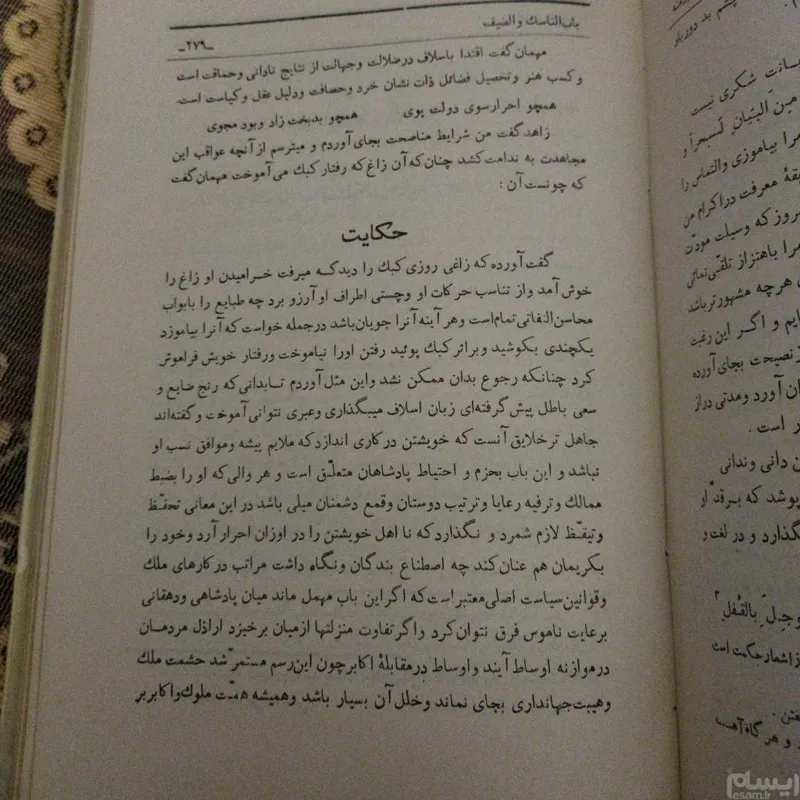 باب الناسك والضیف
ـ۲۷۹ـ
مهمان گفت اقتدا باسلاف درضلالت وجهالت از نتایج نادانی وحماقت است
وکسب هنر وتحصیل فضائل ذات نشان خرد وحصافت ودلیل عقل وکیاست است
همچو احرار سوی دولت پوی همچو بدبخت زاد وبود مجوی
زاهد گفت من شرایط مناصحت بجای آوردم و میترسم از آنچه عواقب این
مجاهدت به ندامت کشد چنان‌که آن زاغ که رفتار کبك می‌آموخت مهمان گفت
که چونست آن :
حکایت
گفت آورده‌که زاغی روزی کبك را دیدکه میرفت خرامیدن او زاغ را
خوش آمد واز تناسب حرکات او وچستی اطراف او آرزو برد چه طبایع را بابواب
محاسن التفاتی تمام‌است وهر آینه آنرا جویان‌باشد درجمله خواست که آنرا بیاموزد
یکچندی بکوشید وبراثر کبك پوئید رفتن اورا نیاموخت ورفتار خویش فراموش
کرد چنانکه رجوع بدان ممکن نشد واین مثل آوردم تابدانی‌که رنج ضایع و
سعی باطل پیش گرفته‌ای زبان اسلاف میبگذاری وعبری نتوانی آموخت وگفته‌اند
جاهل ترخلایق آنست که خویشتن درکاری اندازدکه ملایم پیشه وموافق نسب او
نباشد و این باب بحزم و احتیاط پادشاهان متعلّق است و هر والی‌که او را بضبط
ممالك وترفیه رعایا وترتیب دوستان وقمع دشمنان میلی باشد در این معانی تحفّظ
وتیقّظ لازم شمرد و نگذاردکه نا اهل خویشتن را در اوزان احرار آرد وخود را
بکریمان هم عنان کند چه اصطناع بندگان ونگاه داشت مراتب درکارهای ملك
وقوانین سیاست اصلی معتبراست‌که اگر این باب مهمل ماند میان پادشاهی ودهقانی
برعایت ناموس فرق نتوان‌کرد واگر تفاوت منزلتها ازمیان برخیزد اراذل مردمان
درموازنه اوساط آیند و اوساط درمقابلهٔ اکابرچون این‌رسم مستمرّ شد حشمت ملك
وهیبت‌جهانداری بجای نماند وخلل آن بسیار باشد وهمیشه همّت ملوك‌واکابر بر
چشم بد دور باد
سانت شکری نیست
مرا بیاموزی والتماس را
معرفت دراکرام من
روزکه وسیلت مودّت
مرا باهتزاز تلقّی نمائی
هرچه مشهورتر باشد
ایم و اگر این رغبت
نصیحت بجای آورده
آن آورد ومدتی دراز
ر است .
دانی وندانی
پوشد که برقدّ او
بگذارد و در لغت و
بالقُفلِ ۲
ازاشعار حکمت است
و هرگاه
ایسام
esam.ir